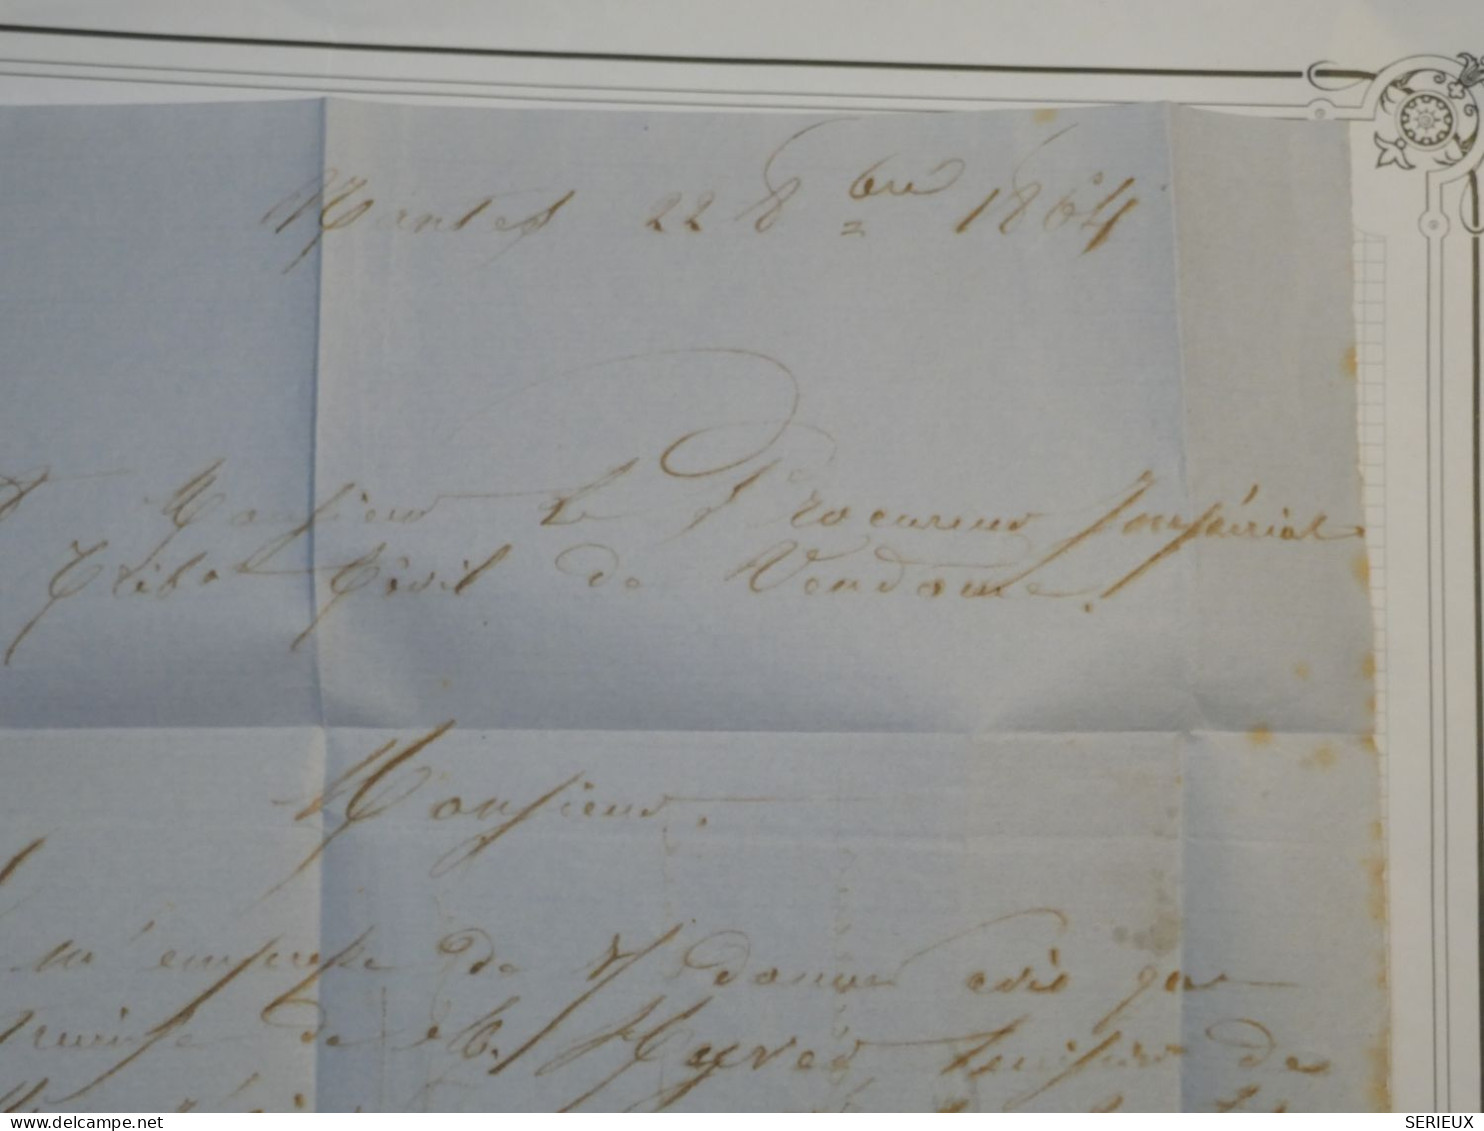 Nantes 22 8bre 1864
Monsieur Le Procureur Impérial
Tribal Civil de Vendome.
Monsieur.
m'empresse de donner avis que
remise de huissier de
SERIEUX